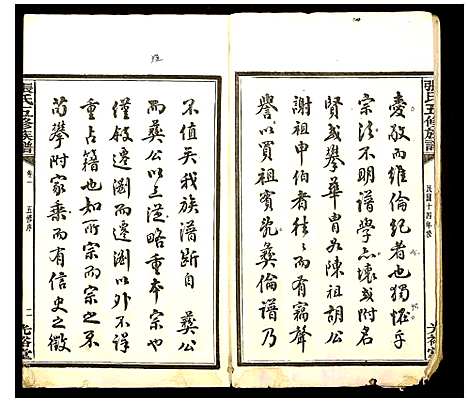 張氏五修族譜
民國十四年季
光裕堂
愛敬而維倫紀者也獨惟乎
宗法不明譜學亦壞或附名
賢或攀華胄如陳祖胡公
謝祖申伯者往往而有竊聲
譽以買祖賓冤彝倫譜乃
不值矣我族譜斷自 彝公
而彝公以上從略重本宗也
僅敘遷瀏而遷瀏以外不詳
重占籍也所宗而宗之不
苟攀附家乘而有信史之徵
張氏五修族譜
卷一
五修序
二
光裕堂